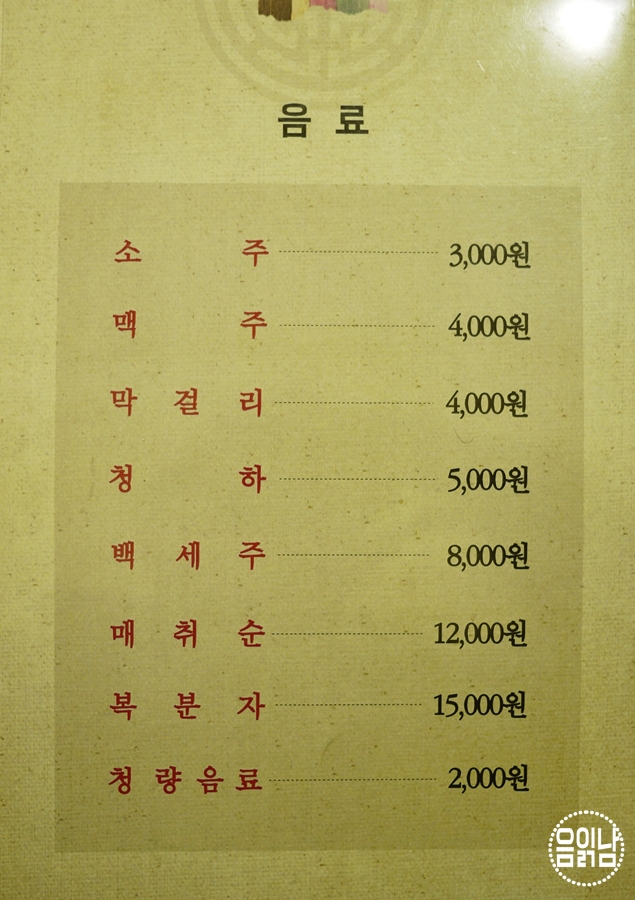 음료
소주 3,000원
맥주 4,000원
막걸리 4,000원
청하 5,000원
백세주 8,000원
매취순 12,000원
복분자 15,000원
청량음료 2,000원